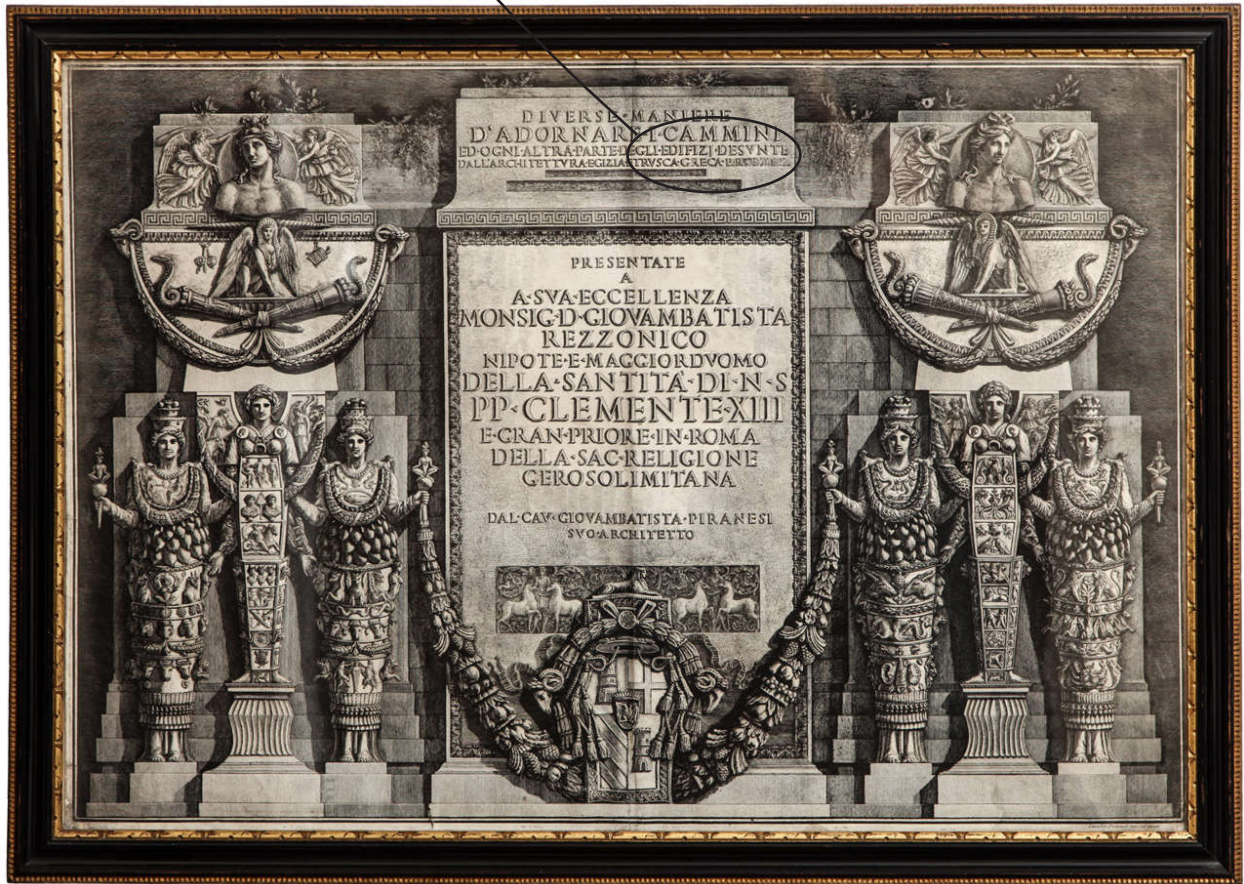 DIVERSE·MANIERE
D'ADORNARE·I·CAMMINI
ED·OGNI·ALTRA·PARTE·DEGLI·EDIFIZJ·DESUNTE
DALL'ARCHITETTVRA·EGIZIA·ETRVSCA·GRECA·E
PRESENTATE
A
A·SVA·ECCELLENZA
MONSIG·D·GIOVAMBATISTA
REZZONICO
NIPOTE·E·MAGGIORDVOMO
DELLA·SANTITÀ·DI·N·S
PP·CLEMENTE·XIII
E·GRAN·PRIORE·IN·ROMA
DELLA·SAC·RELIGIONE
GEROSOLIMITANA
DAL·CAV·GIOVAMBATISTA·PIRANESI
SVO·ARCHITETTO